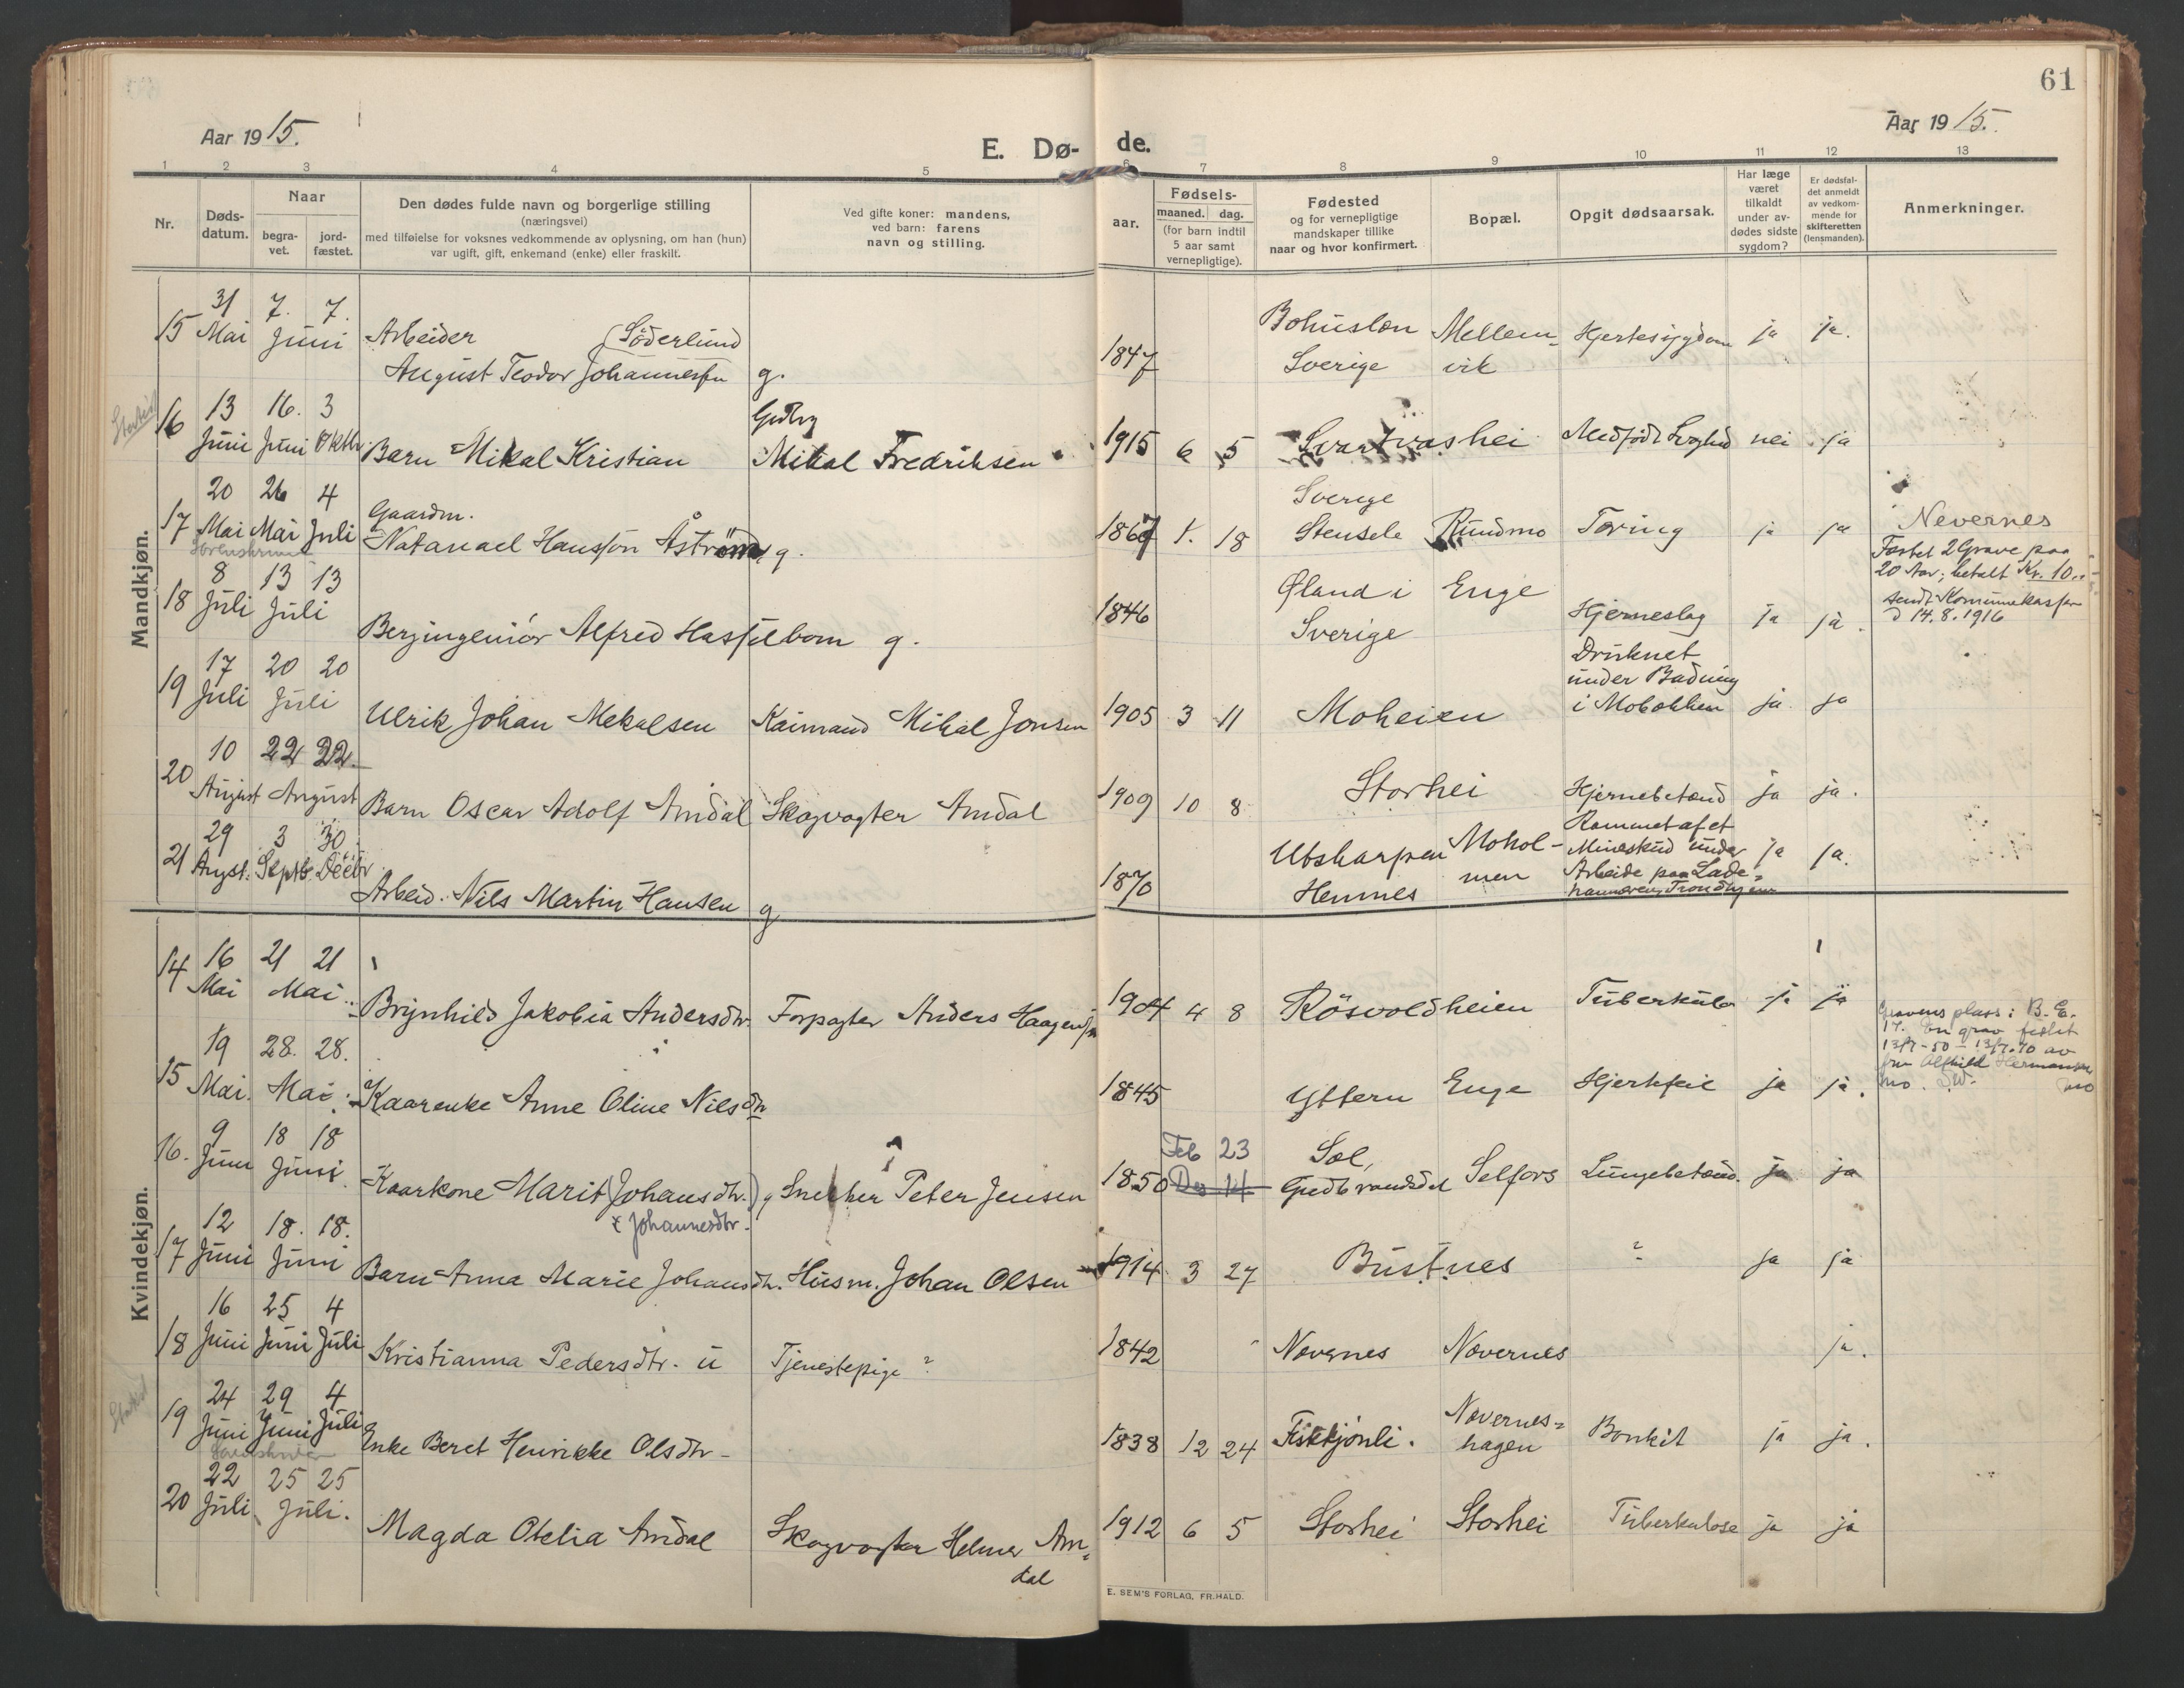 61
Aar 1915.
E. Dø-
de.
Aar 1915.
1 2 3 4 5 6 7 8 9 10 11 12 13
Nr.
Døds-
datum.
Naar
begra-
vet.
jord-
fæstet.
Den dødes fulde navn og borgerlige stilling
(næringsvei)
med tilføielse for voksnes vedkommende av oplysning, om han (hun)
var ugift, gift, enkemand (enke) eller fraskilt.
Ved gifte koner: mandens,
ved barn: farens
navn og stilling.
Fødsels-
aar.
maaned. dag.
(for barn indtil
5 aar samt
vernepligtige).
Fødested
og for vernepligtige
mandskaper tillike
naar og hvor konfirmert.
Bopæl.
Opgit dødsaarsak.
Har læge
været
tilkaldt
under av-
dødes sidste
sygdom?
Er dødsfal-
det anmeldt
av vedkom-
mende for
skifteretten
(lensmanden).
Anmerkninger.
Mandkjøn.
31 7. 7. Bohuslen Mellem-
15 Mai Juni Arbeider (Söderlund Hjertesygdom ja ja.
August Teodor Johannessen g. 1847 Sverige vik
13 16. 3
16 Juni Juni Oktbr. Barn Mikal Kristian Mikal Fredriksen 1915 6 5 Svartvashei Medfödt Svaghed nei ja
20 26 4 Gaardm. Sverige
17 Mai Mai Juli Natanael Hansson Åström g. 1867 1. 18 Stensele Ruudmo Tæring ja ja Nevernes
Fæstet 2 Grave paa
20 Aar; betalt Kr. 10..
sendt Kommunekassen
d 14.8.1916
8 13 13 Øland i Enge
18 Juli Juli Bergingeniör Alfred Hasselbom g. 1846 Sverige Hjerneslag ja ja.
17 20 20 Druknet
under Badning
19 Juli Juli Ulrik Johan Mekalsen Kaimand Mikal Jonsen 1905 3 11 Moheien i Mobækken ja ja
10 22 22.
20 August August Barn Oscar Adolf Amdal Skogvogter Amdal 1909 10 8 Storhei Hjernebetænd ja ja.
29 3 30 Rammet af et
21 Augst. Septb. Decbr Utskarpen Mohol- Mineskud under ja ja.
Arbeid. Nils Martin Hansen g 1870 Hemnes men Arbeide paa Lade-
hammeren, Trondhjem
Kvindekjøn.
16 21 21
14 Mai Mai Brynhild Jakobia Andersdtr. Forpagter Anders Haagensen 1904 4 8 Rösvoldheien Tuberkulo ja ja
Gravens plass: B. E.
17. En grav festet
13/7-50 - 13/7-70 av
fru Alfhild Hermansen
Mo.
19 28. 28.
15 Mai. Mai. Kaarenke Anne Oline Nilsdtr 1845 Yttern Enge Hjertefeil ja ja.
9 18 18 Feb 23 Sel,
16. Juni Juni. Kaarkone Marit (Johansdtr.) g Snekker Peter Jensen 1850 Des 14 Gudbrandsdal Selfors Lungebetænd. ja ja
x Johannesdtr.
12 18. 18.
17 Juni Juni Barn Anna Marie Johansdtr. Husm. Johan Olsen 1914 3 27 Bustnes ? ja ja
16 25 4
18 Juni Juni Juli Kristianna Pedersdtr. u Tjenestepige ? 1842 Nævernes Nævernes ja.
24 29 4 Nævernes-
19 Juni Juni Juli Enke Beret Henrikke Olsdtr 1838 12 24 Fisktjönli. hagen Bronkit ja ja.
22 25 25
20 Juli Juli. Magda Otelia Amdal Skogvogter Helmer Am- 1912 6 5 Storhei Storhei Tuberkulose ja ja
dal
E. SEM'S FORLAG, FR.HALD.